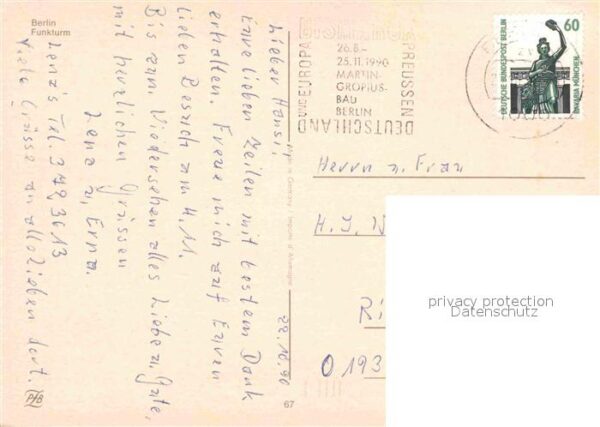 Berlin
Funkturm
22.10.90
Lieber Hansi!
Eure lieben Zeilen mit bestem Dank
erhalten. Freue mich auf Euren
lieben Besuch am 4.11.
Bis zum Wiedersehen alles Liebe u. Gute,
mit herzlichen Grüssen
Lena u. Erna.
Lena's Tel. 3 49 36 13
Viele Grüsse an alle Lieben dort.
PfB
67
BISMARCK
PREUSSEN
DEUTSCHLAND
UND EUROPA
26.8.–
25.11.1990
MARTIN-
GROPIUS-
BAU
BERLIN
60
DEUTSCHE BUNDESPOST BERLIN
BAVARIA MÜNCHEN
Herrn u. Frau
H. J.
Ri
O 193
privacy protection
Datenschutz